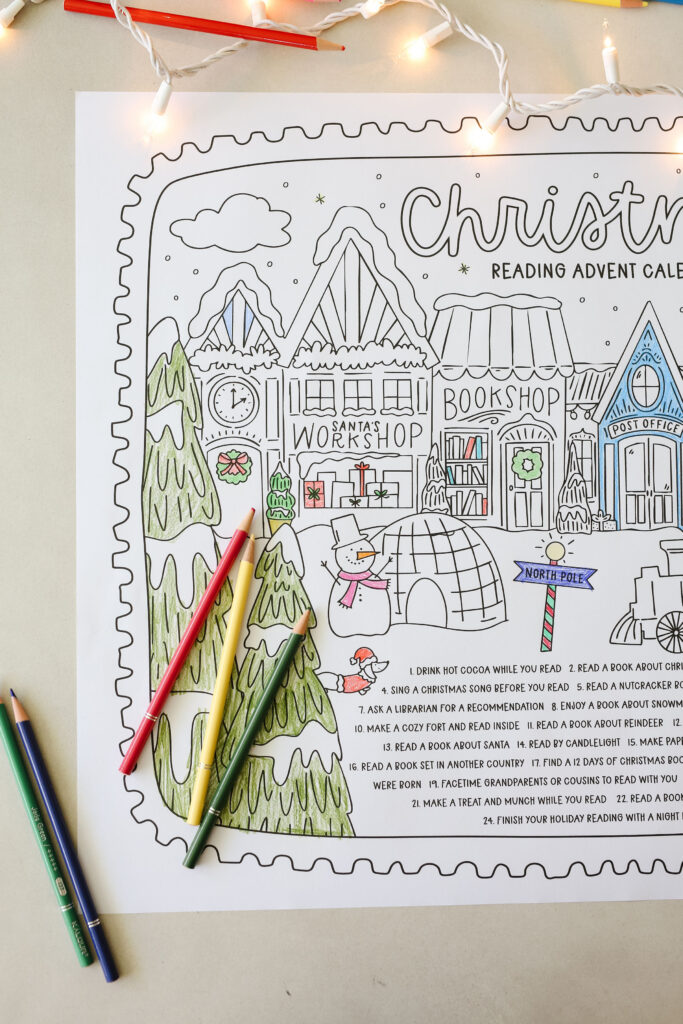 Christm
READING ADVENT CALE
BOOKSHOP
SANTA'S
WORKSHOP
POST OFFICE
NORTH POLE
1. DRINK HOT COCOA WHILE YOU READ 2. READ A BOOK ABOUT CHRI
4. SING A CHRISTMAS SONG BEFORE YOU READ 5. READ A NUTCRACKER BO
7. ASK A LIBRARIAN FOR A RECOMMENDATION 8. ENJOY A BOOK ABOUT SNOWM
10. MAKE A COZY FORT AND READ INSIDE 11. READ A BOOK ABOUT REINDEER 12.
13. READ A BOOK ABOUT SANTA 14. READ BY CANDLELIGHT 15. MAKE PAPE
16. READ A BOOK SET IN ANOTHER COUNTRY 17. FIND A 12 DAYS OF CHRISTMAS BOO
WERE BORN 19. FACETIME GRANDPARENTS OR COUSINS TO READ WITH YOU
21. MAKE A TREAT AND MUNCH WHILE YOU READ 22. READ A BOOK
24. FINISH YOUR HOLIDAY READING WITH A NIGHT